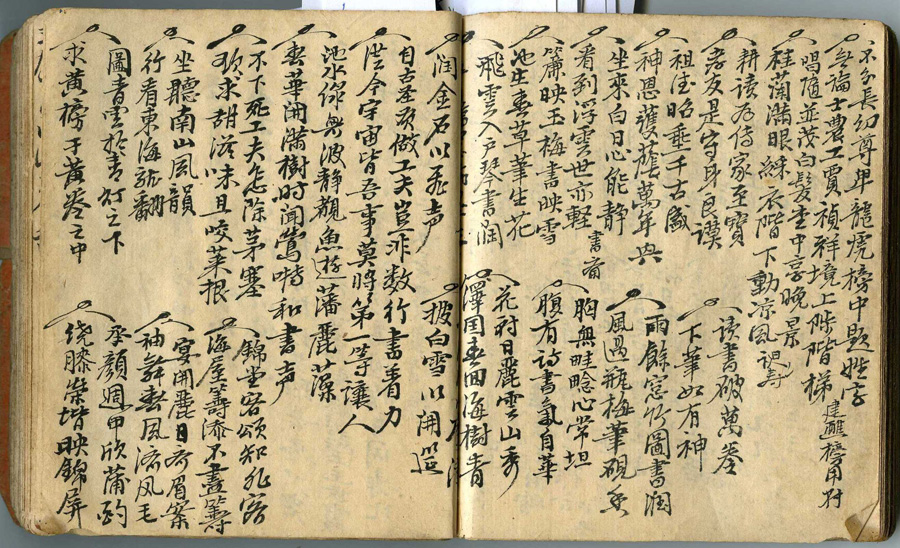 不分長幼尊卑龍虎榜中題姓字
無論士農工賈禎祥境上陟階梯 建醮榜用對
唱隨並茂白髮堂中享晚景
桂蘭滿眼綵衣階下動涼風 祝壽
耕讀為傳家至寶
孝友是守身良謨
祖德昭垂千古盛
神恩護蔭萬年興
坐來白日心能靜
看到浮雲世亦輕 書齋
簾映玉梅書映雪
池生春草筆生花
飛雲入戶琴書潤
讀書破萬卷
下筆如有神
雨餘窓竹圖書潤
風過瓶梅筆硯香
胸無畦畛心常坦
腹有詩書氣自華
花村日麗雲山秀
澤國春回海樹青
潤金石以飛声
披白雪以開筵
自古圣賢做工夫豈非数行書着力
洪今宇宙皆吾事莫將第一等讓人
池水綠無波静觀魚遊藩麗藻
春華開滿樹時聞鶯囀和書声
不下死工夫怎除茅塞
欲求甜滋味且咬菜根
坐聽南山風韻
行看東海龍翻
圖青雲於青灯之下
求黃榜于黃卷之中
錦堂客頌知孔容
海屋籌添不盡籌
宴開麗日齊眉案
袖舞春風流风毛
承顏週甲欣蒲酌
绕膝榮堦映錦屏